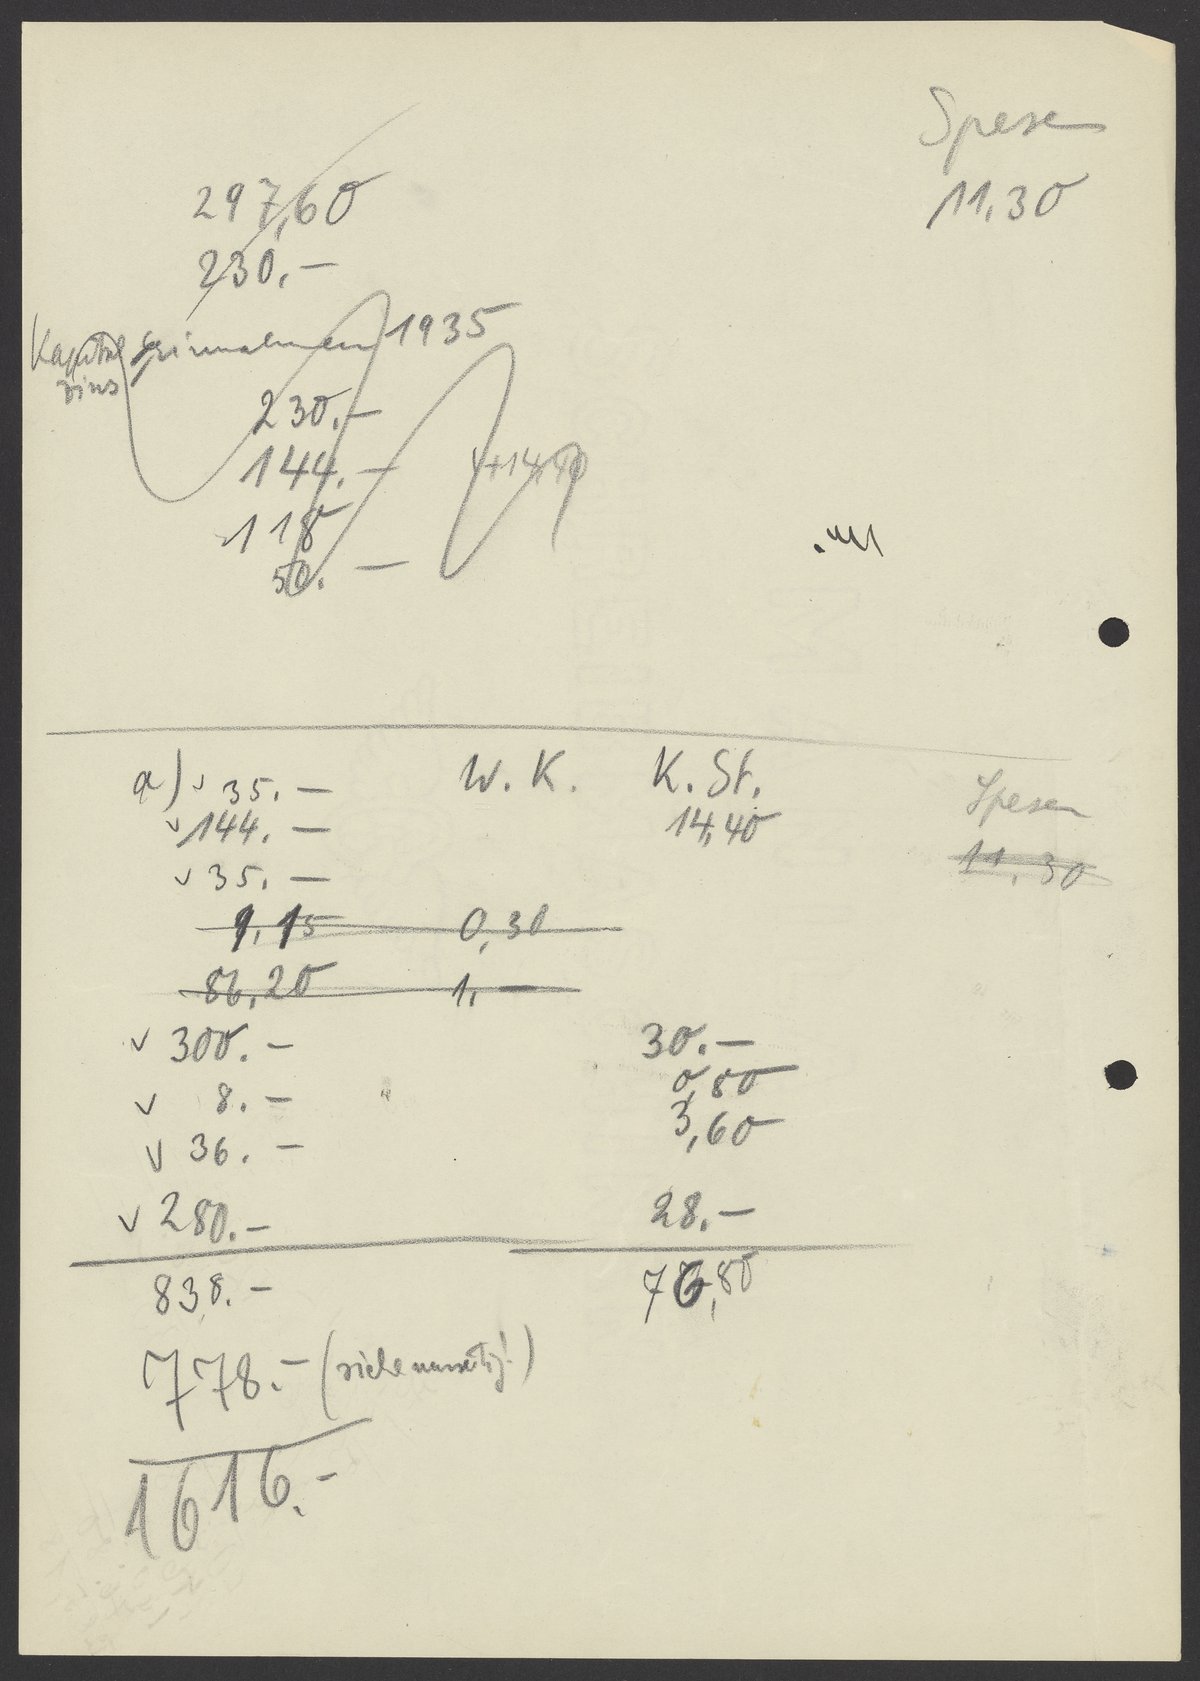 Spesen
11.30
297,60
230.—
Kapital einnahmen 1935
zins
230.—
144.—
118
50.—
a) v 35.— W. K. K. St. Spesen
v 144.— 14,40 11,30
v 35.—
1,15 0,30
86,20 1,—
v 300.— 30.—
v 8.— 0,80
v 36.— 3,60
v 280.— 28.—
838.— 76,80
778.— (siehe
1616.-